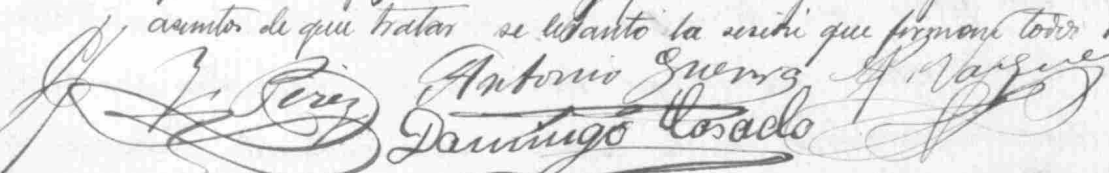 asuntos de que tratar se levantó la sesión que firman todos
Y. Pérez Antonio Guerra A. Vazquez
Domingo Rosado